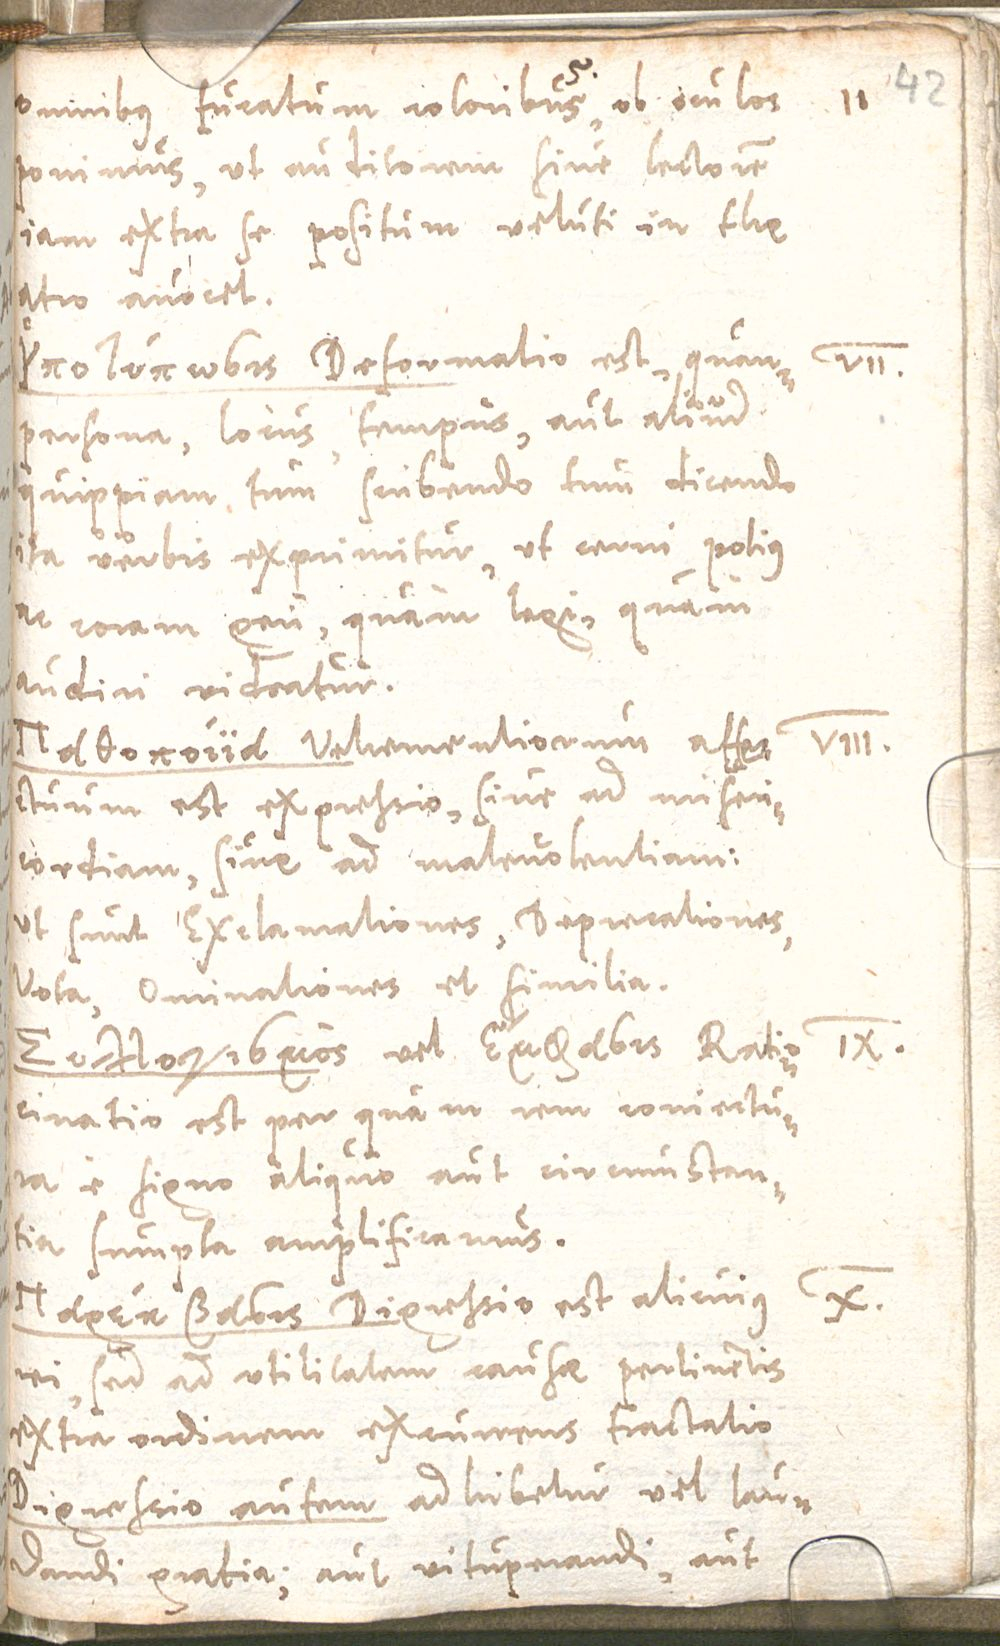 omnibus fucatum coloribus, ob oculos 11 42
ponimus, ut auditorem sive lectorē
iam extra se positum veluti in the
atro avocet.
Ὑποτύπωσις Deformatio est, quan„ VII.
persona, locus, tempus, aut aliud
quippiam tum scribendo tum dicendo
ita verbis exprimitur, ut cerni potius
ac coram geri, quàm legi, quàm
audiri videatur.
Παθοποιΐα Vehementiorum affe„ VIII.
ctuum est expressio, sive ad miseri„
cordiam, sive ad malevolentiam:
ut sunt Exclamationes, Deprecationes,
Vota, Ominationes et similia.
Συλλογισμὸς vel Ἔμφασις Ratio„ IX.
cinatio est per quam rem coniectu„
ra è signo aliquo aut circumstan„
tia sumpta amplificamus.
Παρέκβασις Digressio est alicuius X.
rei, sed ad utilitatem causæ pertinētis
extra ordinem excurrens tractatio
Digressio autem adhibetur vel lau„
dandi gratia; aut vituperandi, aut